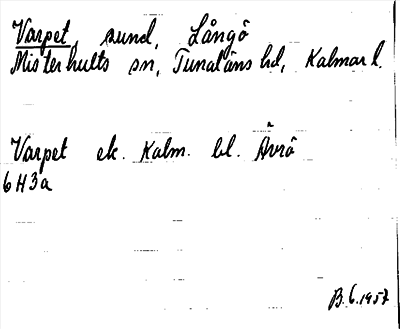 Varpet, sund, Långö
Misterhults sn, Tunaläns hd, Kalmar l.
Varpet ek. Kalm. bl. Ävrö
6H3a
B. 6. 1957